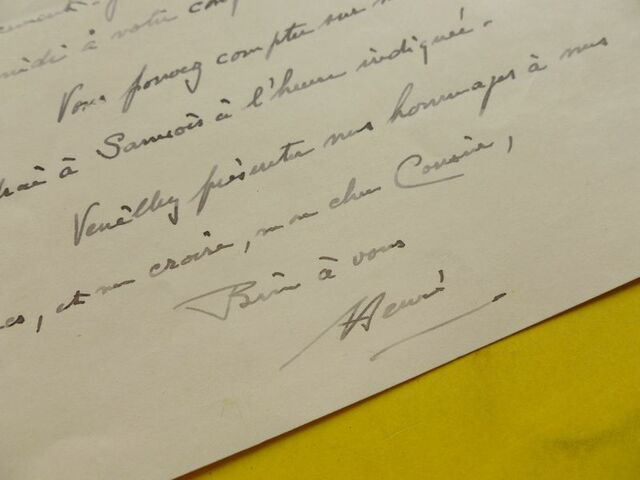 à votre
Vous pouvez compter sur
à Samois à l'heure indiquée.
Veuillez présenter mes hommages à mes
et me croire, mon cher Cousin,
Bien à vous
Henri